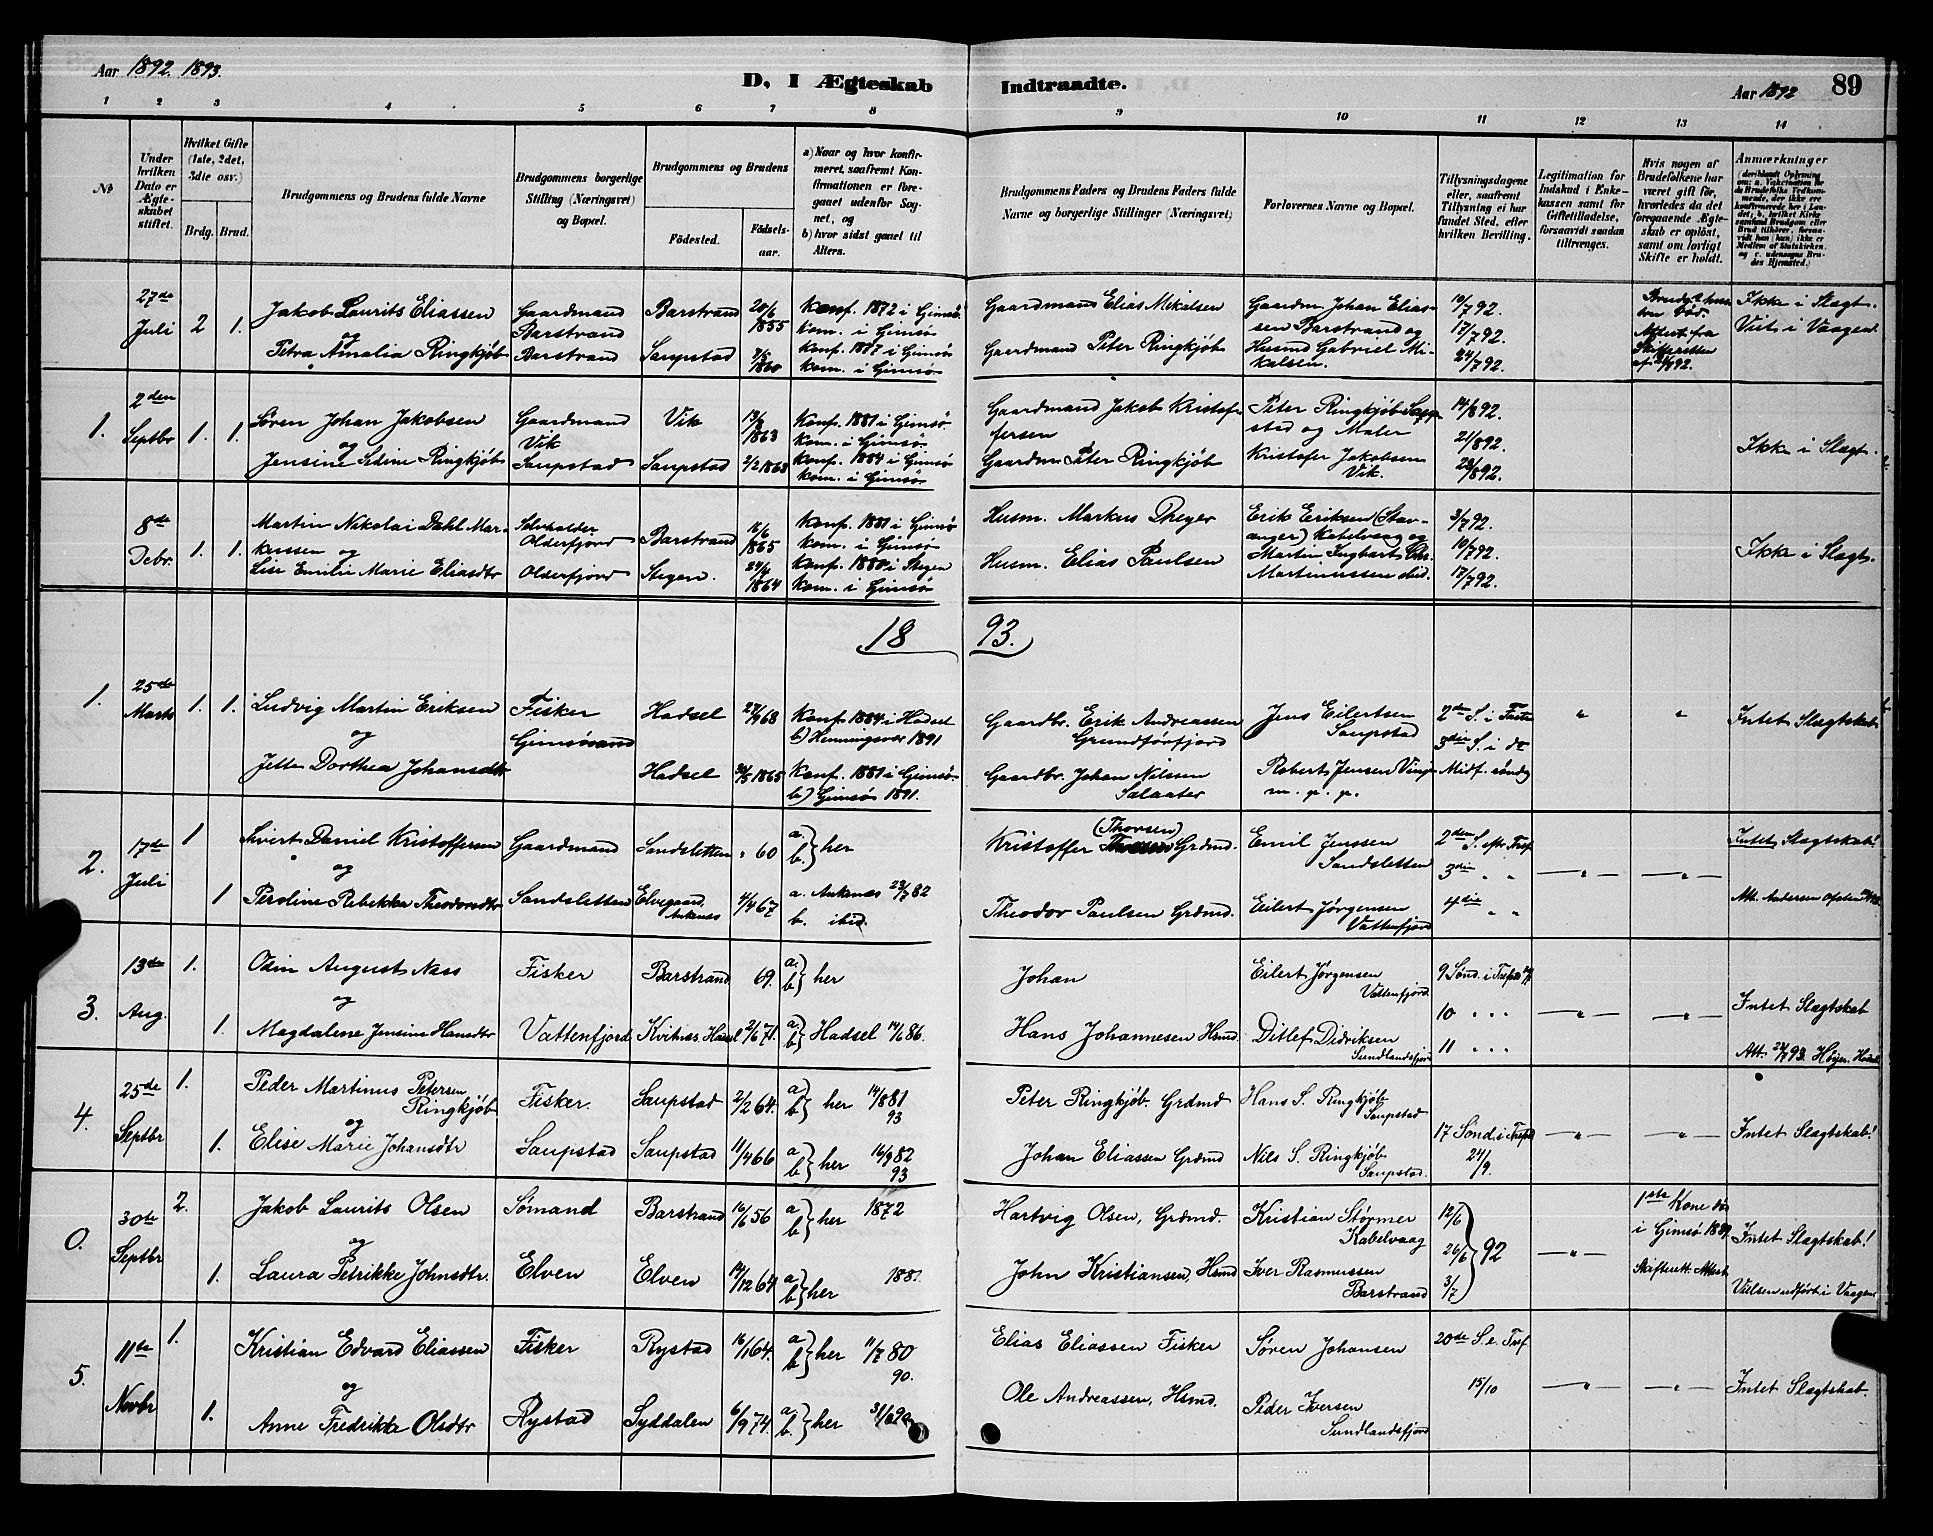 Aar 1892. 1893.
D, I Ægteskab Indtraadte.
Aar 1892 89
1 2 3 4 5 6 7 8 9 10 11 12 13 14
№
Under hvilken Dato er Ægteskabet stiftet.
Hvilket Gifte (1ste, 2det, 3die osv.)
Brdg. Brud.
Brudgommens og Brudens fulde Navne
Brudgommens borgerlige Stilling (Næringsvei) og Bopæl.
Brudgommens og Brudens
Fødested. Fødsels-aar.
a) Naar og hvor konfirmeret, saafremt Konfirmationen er foregaaet udenfor Sognet, og
b) hvor sidst gaaet til Alters.
Brudgommens Faders og Brudens Faders fulde Navne og borgerlige Stillinger (Næringsvei)
Forlovernes Navne og Bopæl.
Tillysningsdagene eller, saafremt Tillysning ei har fundet Sted, efter hvilken Bevilling.
Legitimation for Indskud i Enkekassen samt for Giftetilladelse, forsaavidt saadan tiltrænges.
Hvis nogen af Brudefolkene har været gift før, hvorledes da det foregaaende Ægteskab er opløst, samt om lovligt Skifte er holdt.
Anmærkninger
27de Juli 2 1.
Jakob Laurits Eliassen
og
Petra Amalia Ringkjøb
Gaardmand
Barstrand
Barstrand
Barstrand 20/6 1855
Saupstad 7/5 1860
Konf. 1872 i Gimsø.
kom. i Gimsø
Konf. 1877 i Gimsø
kom. i Gimsø
Gaardmans Elias Mikalsen
Gaardmand Peter Ringkjøb
Gaardm. Johan Elias-
sen Barstrand og
Husmd Gabriel Mi-
kalsen.
10/792.
17/792.
24/792.
Attest fra
Skifteretten
Ikke i Slagt.
Viet i Vaagen
1. 2den Septbr 1. 1.
Søren Johan Jakobsen
og
Jensine Sedine Ringkjøb
Gaardmand
Vik
Saupstad
Vik 13/8 1863
Saupstad 2/2 1868
Konf. 1881 i Gimsø
kom. i Gimsø
Konf. 1884 i Gimsø
kom. i Gimsø
Gaardmand Jakob Kristof-
fersen
Gaardm. Peter Ringkjøb
Peter Ringkjøb Saup-
stad og Maler
Kristofer Jakobsen
Vik.
14/892.
21/892.
28/892.
Ikke i Slagt.
8de Debr. 1. 1.
Martin Nikolai Dahl Mar-
kussen og
Lise Emilie Marie Eliasdtr
Selvholder
Olderfjord
Olderfjord
Barstrand 16/6 1865
Stegen. 24/4 1864
Konf. 1881 i Gimsø
kom. i Gimsø
Konf. 1880 i Stegen
kom. i Gimsø
Husm. Markus Theger
Husm. Elias Paulsen
Erik Eriksen (Stav-
anger) Kabelvaag og
Martin Ingbart Chr.
Martinussen ibid.
3/792.
10/792.
17/792.
Ikke i Slagt.
18 93.
1. 25de Marts 1. 1.
Ludvig Martin Eriksen
og
Jette Dorthea Johansdtr
Fisker
Gimsøsand
Hadsel 27/968
Hadsel 24/5 1865
Konf. 1884 i Hadsel
b) Henningsvær 1891
Konf. 1881 i Gimsø.
b) Gimsø 1891.
Gaardbr. Erik Andreassen
Grundførfjord
Gaardbr. Johan Nilssen
Salaater
Jens Eilertsen
Saupstad
Robert Jensen Vinje
m. p. p.
2den S. i Faste
3die S. i do
Midf. sønd
"
"
Intet Slagtskab
2. 17de Juli 1
1
Sivert Daniel Kristoffersen
og
Peroline Rebekka Theodorsdtr
Gaardmand
Sandsletten
Sandsletten " 60
Elvegaard, Ankenæs 4/467
a. b. } her
a. Ankenæs 29/782
b. ibid.
Kristoffer (Thorsen) Grdmd.
Theodor Paulsen Grdmd.
Emil Jenssen
Sandsletten
Eilert Jørgensen
Vattenfjord
2den S. eftr. Tref.
3die " "
4die " "
— " —
— " —
Intet Slagtskab!
Att. Andersen Ofoten
3. 13de Aug. 1.
1.
Odin August Nass
og
Magdalene Jensine Hansdtr
Fisker
Vattenfjord
Barstrand 69.
Kvitnes. Hadsel 2/671.
a. b } her
a. b } Hadsel 14/686.
Johan
Hans Johannesen Hsmd.
Eilert Jørgensen
Vattenfjord.
Ditlef Didriksen
Sundlandsfjord
9 Sønd. i Trefold.
10 " " "
11 " " "
— " —
— " —
Intet Slagtskab
Att. 24/793. Høyer. Hadsel
4. 25de Septbr 1.
1.
Peder Martinus Petersen
Ringkjøb
og
Elise Marie Johansdtr
Fisker.
Saupstad
Saupstad 2/264.
Saupstad 11/466
a. b } her 14/881
93
a b } her 16/982
93
Peter Ringkjøb. Grdmd
Johan Eliassen Grdmd
Hans S. Ringkjøb
Saupstad
Nils S. Ringkjøb
Saupstad.
17 Sønd. i Trefd
24/9.
— " —
— " —
Intet Slagtskab!
0. 30te Septbr 2.
1.
Jakob Laurits Olsen
og
Laura Petrikke Johnsdtr.
Sømand
Elven
Barstrand 16/656
Elven 14/1264
a b } her 1872
a b } her 1881.
Hartvig Olsen, Grdmd.
John Kristiansen, Hsmd
Kristian Størmer
Kabelvaag
Iver Rasmussen
Barstrand
12/6
26/6 } 92
3/7
— " —
1ste Kone død
i Gimsø 1889
Skifterett. Attest
Intet Slagtskab!
Vielsen udført i Vaagen
5. 11te Novbr 1.
1.
Kristian Edvard Eliassen
og
Anne Fredrikke Olsdtr
Fisker
Rystad
Rystad 16/164.
Syddalen 6/974.
a b } her 11/780
90.
a b. } her
Elias Eliassen Fisker
Ole Andreassen, Hsmd.
Søren Johansen
Peder Iversen
Sundlandsfjord
20de S. e. Tref
15/10
— " —
— " —
Intet Slagtskab.